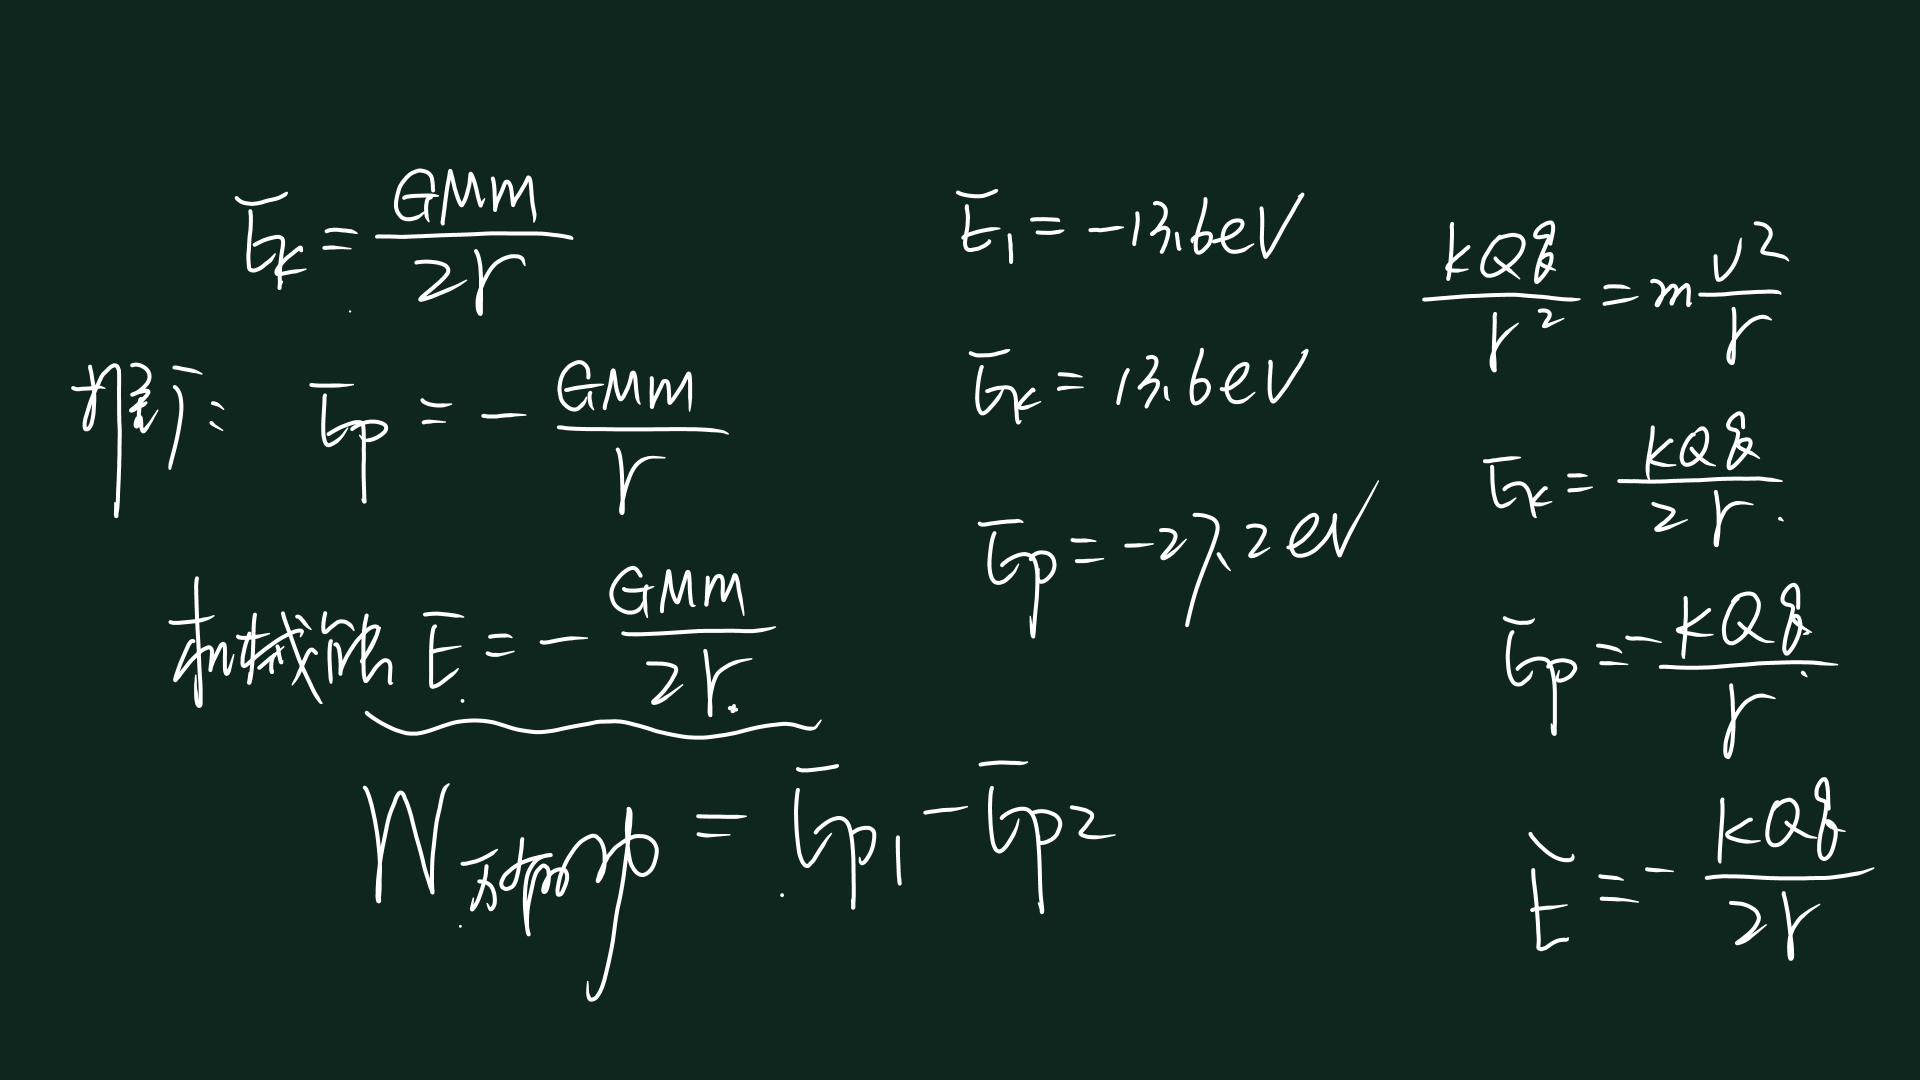 E_k = GMm / 2r
推广: E_p = - GMm / r
机械能 E = - GMm / 2r
W万有引力 = E_p1 - E_p2
E_1 = -13.6eV
E_k = 13.6eV
E_p = -27.2eV
kQq / r² = m v² / r
E_k = kQq / 2r
E_p = - kQq / r
E = - kQq / 2r